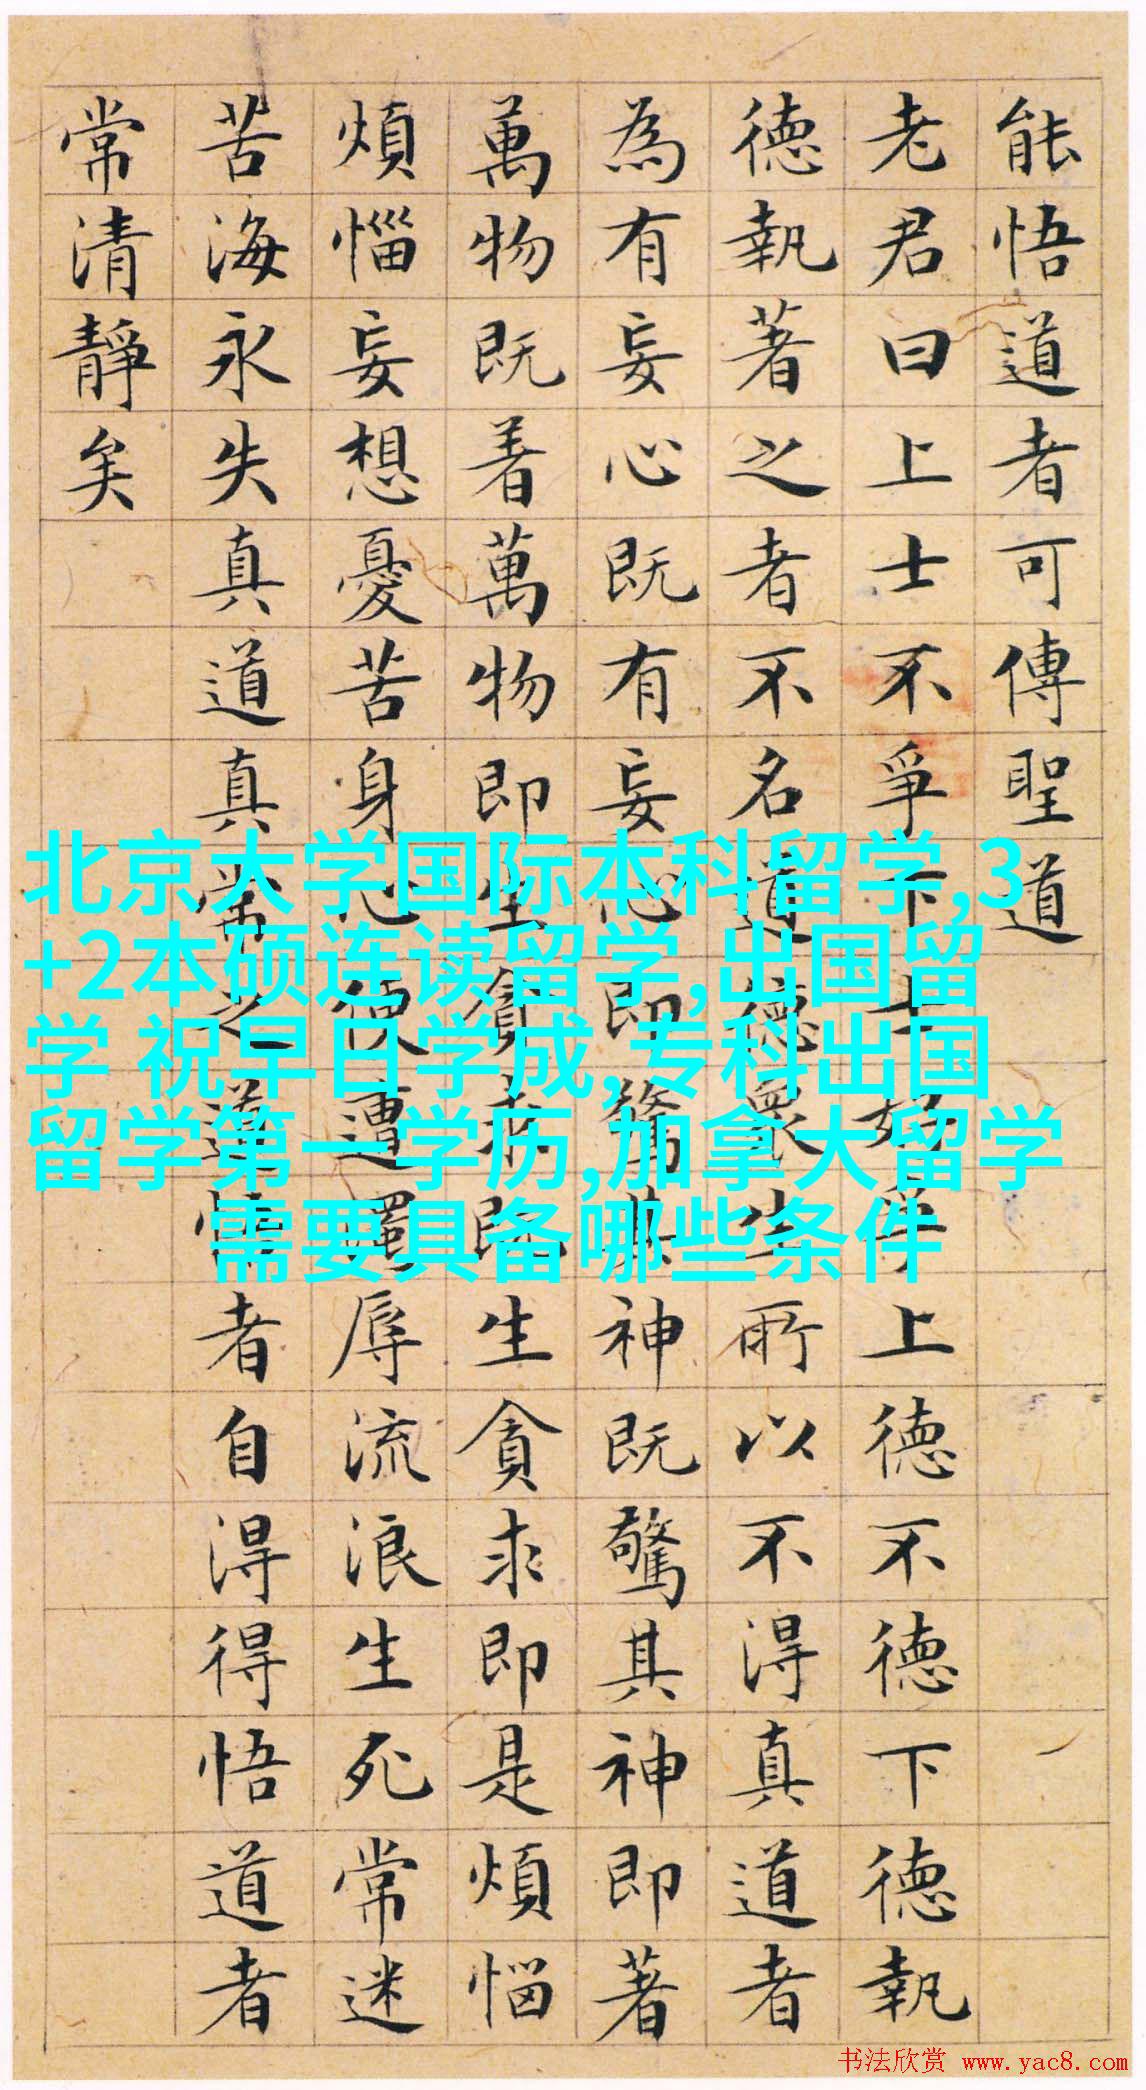 能悟道者可傳聖道
老君曰上士不爭下士好爭上德不德下德執
德執著之者不名道德眾生所以不得真道者
為有妄心既有妄心即驚其神既驚其神即著
萬物既着萬物即生貪求既生貪求即是煩惱
煩惱妄想憂苦身心便遭濁辱流浪生死常迷
苦海永失真道真常之道悟者自得得悟道者
常清靜矣
北京大学国际本科留学,3
+2本硕连读留学,出国留
学 祝早日学成,专科出国
留学第一学历,加拿大留学
需要具备哪些条件
书法欣赏 www.yac8.com